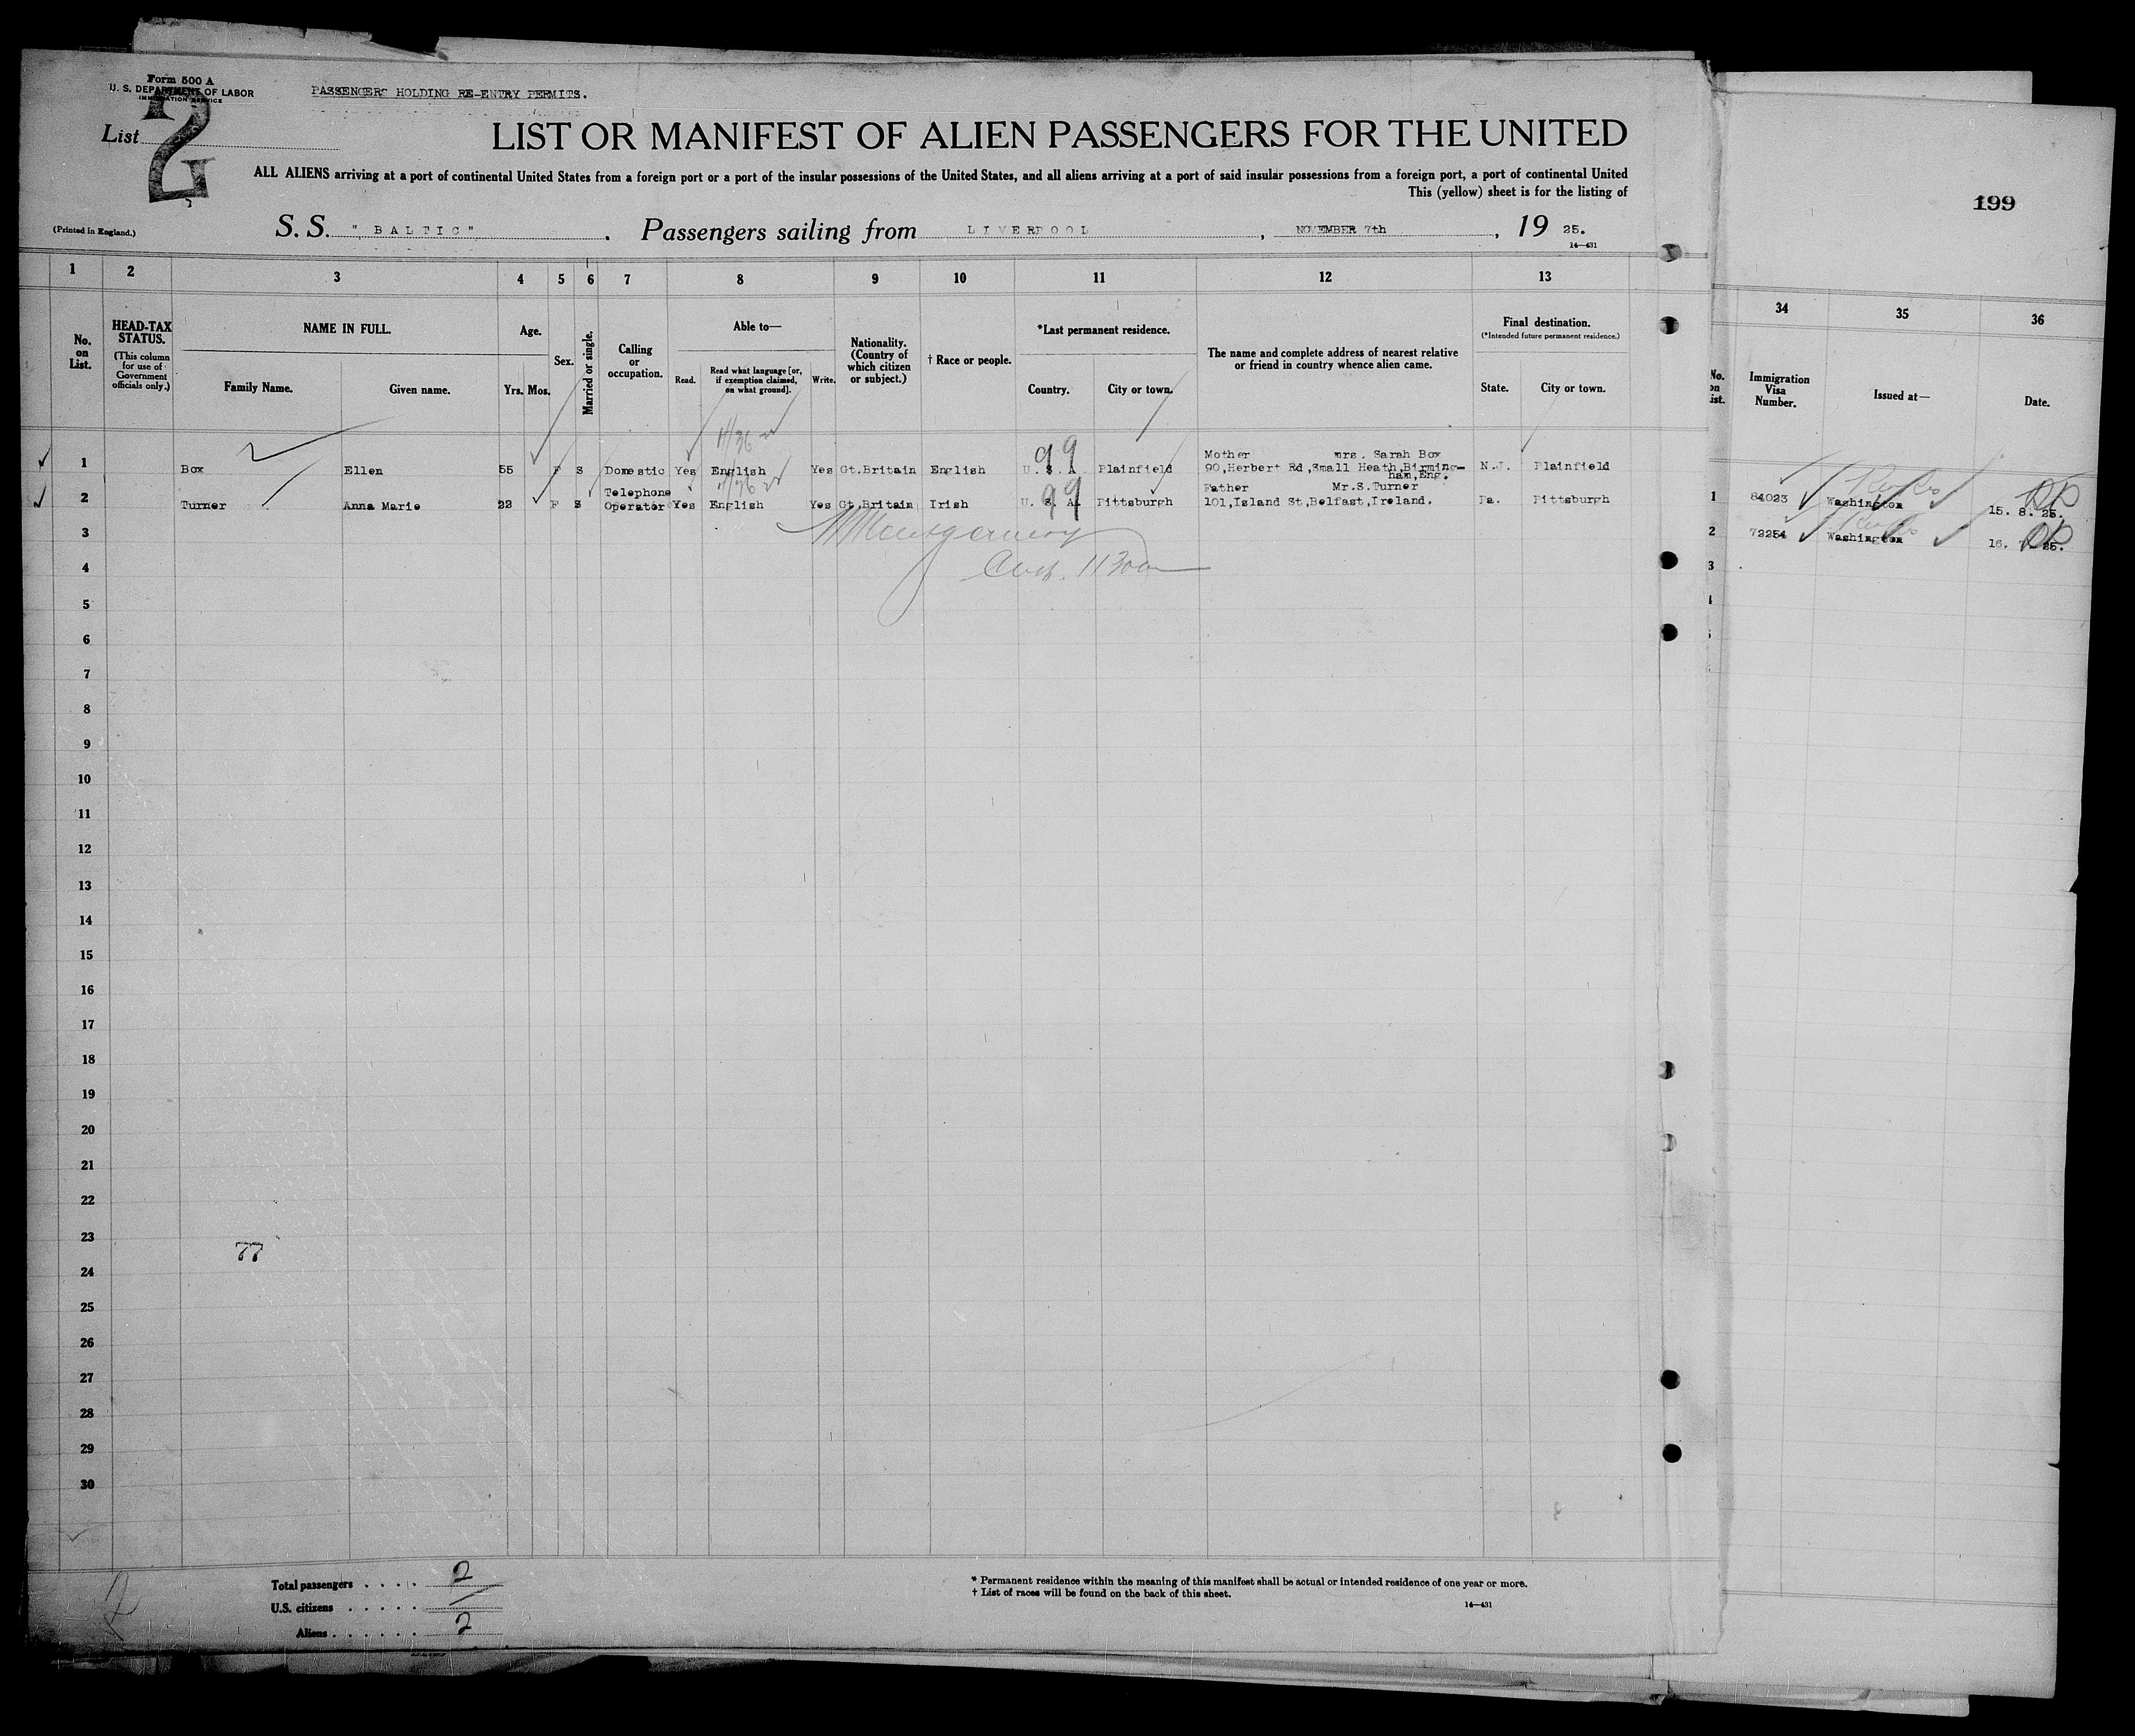 Form 500 A
U. S. DEPARTMENT OF LABOR
IMMIGRATION SERVICE
PASSENGERS HOLDING RE-ENTRY PERMITS.
List
2
LIST OR MANIFEST OF ALIEN PASSENGERS FOR THE UNITED
ALL ALIENS arriving at a port of continental United States from a foreign port or a port of the insular possessions of the United States, and all aliens arriving at a port of said insular possessions from a foreign port, a port of continental United
This (yellow) sheet is for the listing of
199
(Printed in England.)
S. S. "BALTIC". Passengers sailing from LIVERPOOL, NOVEMBER 7th, 19 25.
14—431
1 2 3 4 5 6 7 8 9 10 11 12 13
34 35 36
No. on List.
HEAD-TAX STATUS.
(This column for use of Government officials only.)
NAME IN FULL.
Family Name. Given name.
Age.
Yrs. Mos.
Sex.
Married or single.
Calling or occupation.
Able to—
Read. Read what language [or, if exemption claimed, on what ground]. Write.
Nationality. (Country of which citizen or subject.)
† Race or people.
*Last permanent residence.
Country. City or town.
The name and complete address of nearest relative or friend in country whence alien came.
Final destination.
(*Intended future permanent residence.)
State. City or town.
No. on List.
Immigration Visa Number.
Issued at—
Date.
Mother Mrs. Sarah Box
1 Box Ellen 55 F S Domestic Yes English Yes Gt.Britain English U. S. A Plainfield 90,Herbert Rd,Small Heath,Birming- N.J. Plainfield
ham,Eng.
Telephone Father Mr.S.Turner
2 Turner Anna Marie 22 F S Operator Yes English Yes Gt.Britain Irish U. S. A. Pittsburgh 101,Island St,Belfast,Ireland. Pa. Pittsburgh
99
99
1 84023 Washington 15. 8. 25.
2 72254 Washington 16. 7. 25.
Montgomery
1130am
3
4
5
6
7
8
9
10
11
12
13
14
15
16
17
18
19
20
21
22
23
77
24
25
26
27
28
29
30
Total passengers . . . . 2
U.S. citizens . . . . . /
Aliens . . . . . . 2
* Permanent residence within the meaning of this manifest shall be actual or intended residence of one year or more.
† List of races will be found on the back of this sheet.
14—431